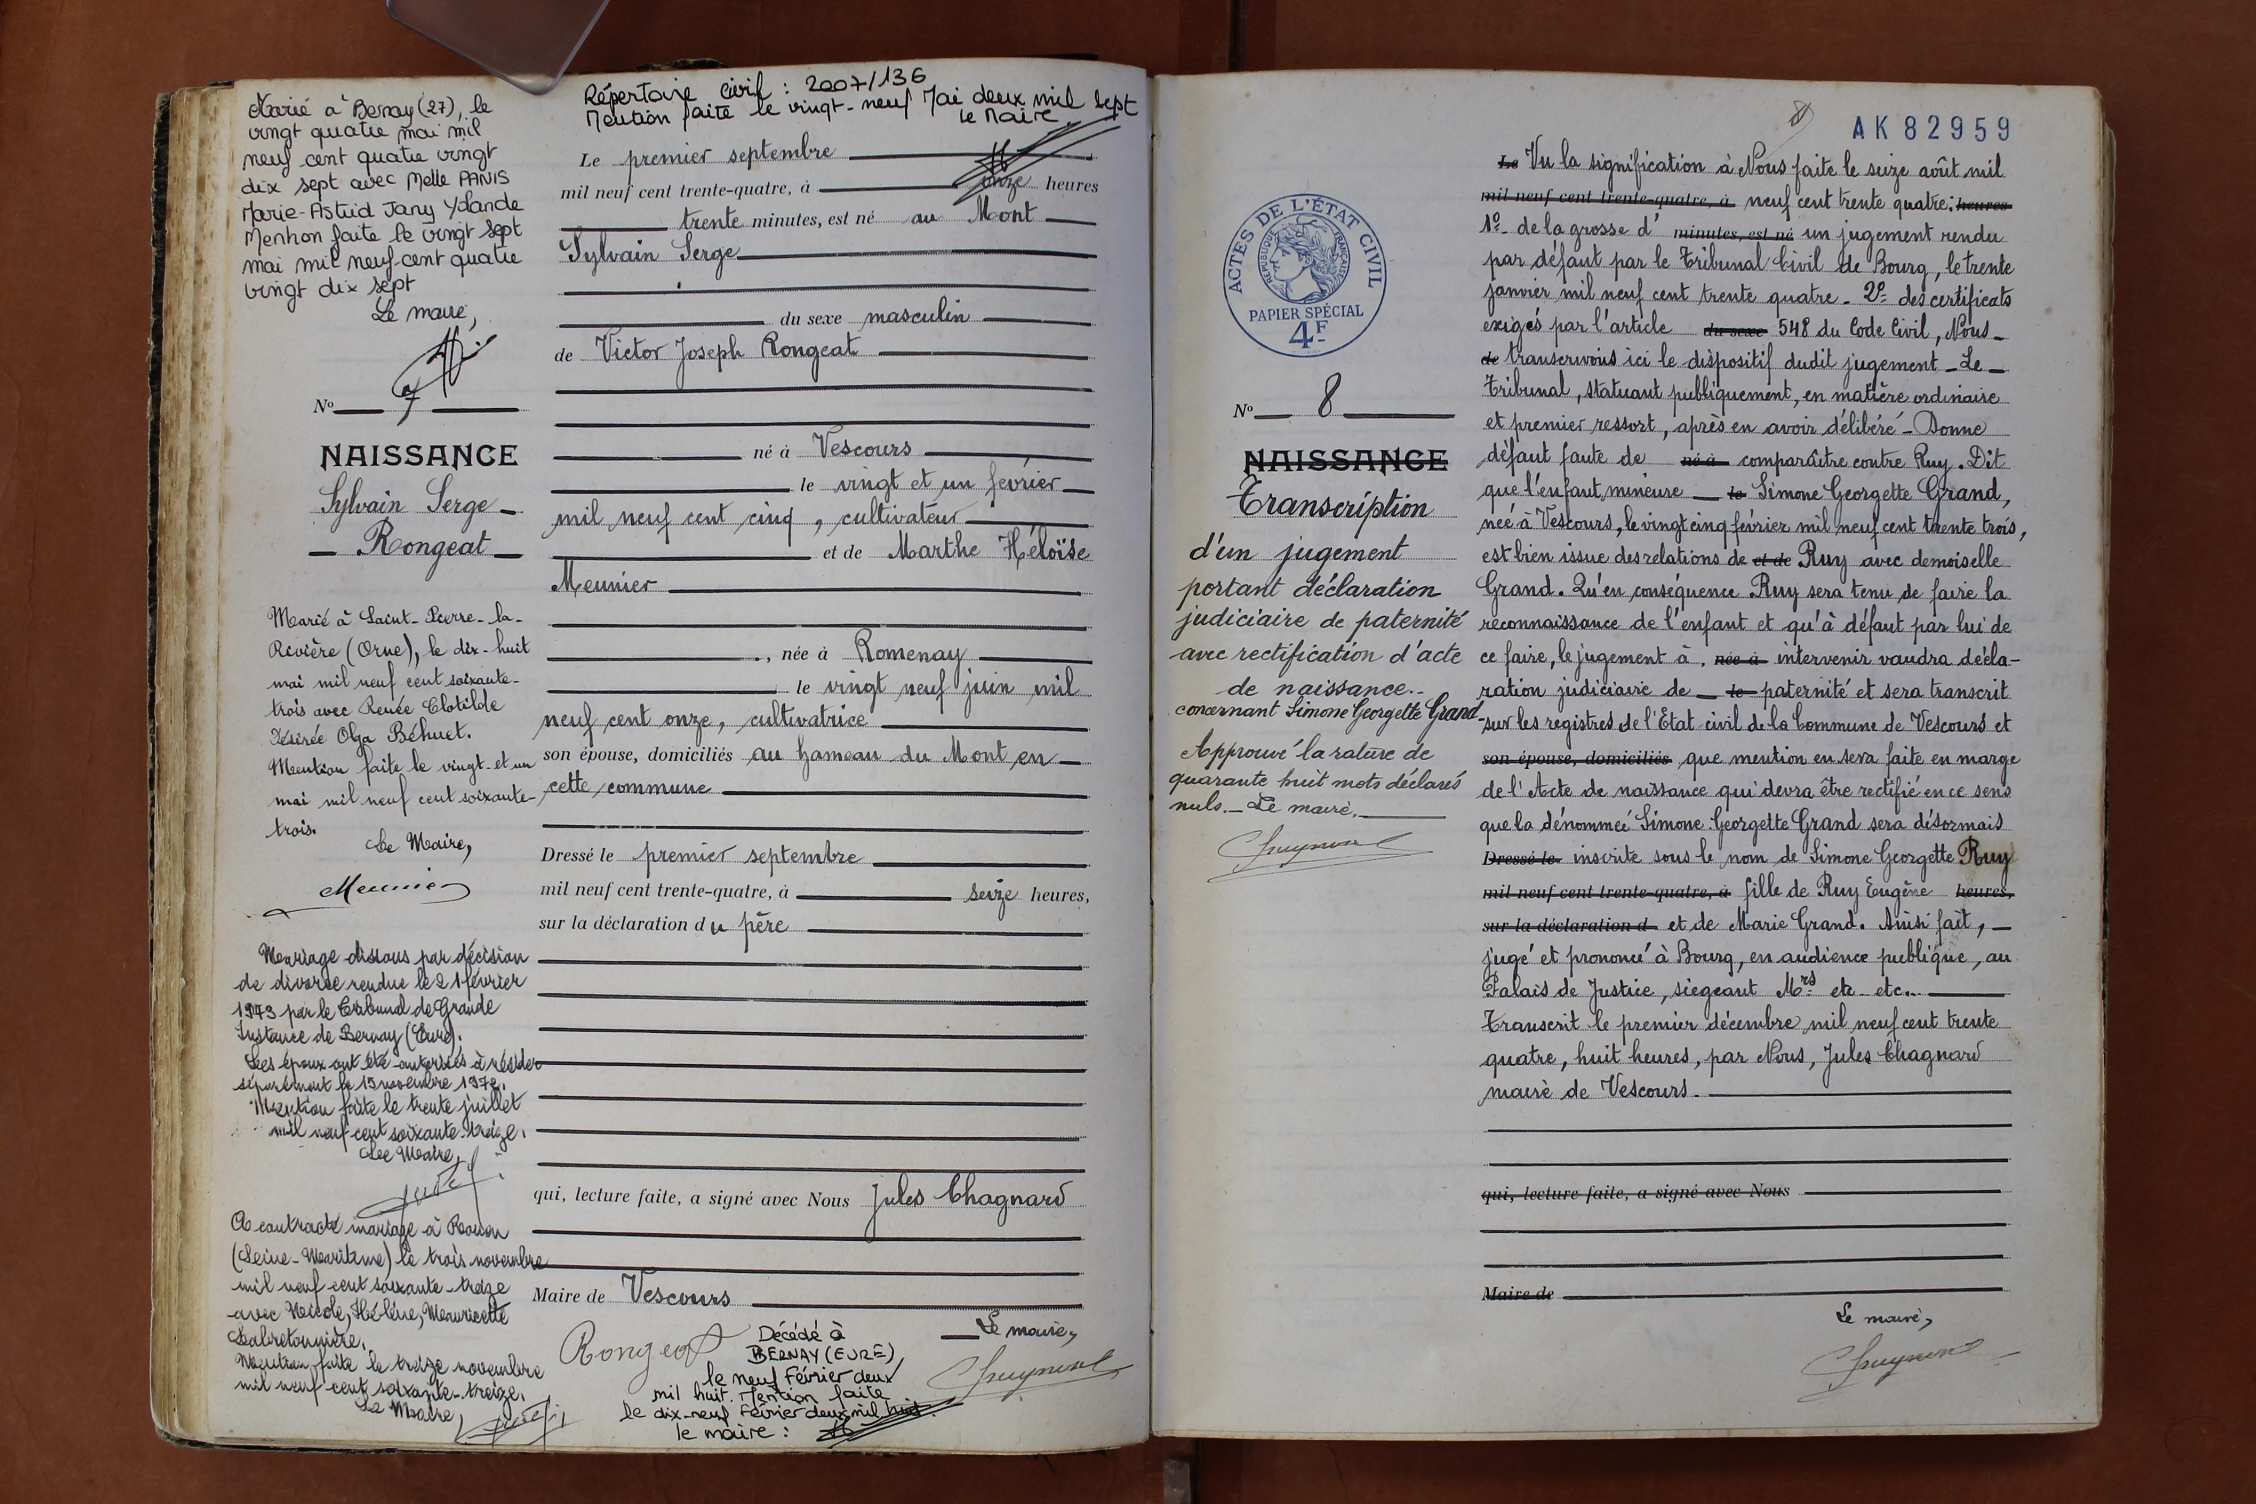 Marié à Bernay (27), le
vingt quatre mai mil
neuf cent quatre vingt
dix sept avec Melle PANIS
Marie-Astrid Jany Yolande
Mention faite le vingt sept
mai mil neuf cent quatre
vingt dix sept
Le maire,
N° 7
NAISSANCE
Sylvain Serge
Rongeat
Marié à Saint-Pierre-la-
Rivière (Orne), le dix-huit
mai mil neuf cent soixante-
trois avec Renée Clotilde
Désirée Olga Béhuet.
Mention faite le vingt-et-un
mai mil neuf cent soixante-
trois.
Le Maire,
Meunier
Mariage dissous par décision
de divorce rendue le 21 février
1973 par le Tribunal de Grande
Instance de Bernay (Eure).
Les époux ont été autorisés à résider
séparément le 15 novembre 1972.
Mention faite le trente juillet
mil neuf cent soixante-treize.
Le Maire,
A contracté mariage à Rouen
(Seine-Maritime) le trois novembre
mil neuf cent soixante-treize
avec Nicole, Hélène, Mauricette
Labretonnière.
Mention faite le treize novembre
mil neuf cent soixante-treize.
Le Maire,
Répertoire civil : 2007/136
Mention faite le vingt-neuf Mai deux mil sept
le Maire
Le premier septembre
mil neuf cent trente-quatre, à onze heures
trente minutes, est né au Mont
Sylvain Serge
du sexe masculin
de Victor Joseph Rongeat
né à Vescours
le vingt et un février
mil neuf cent cinq, cultivateur
et de Marthe Héloïse
Meunier
, née à Romenay
le vingt neuf juin mil
neuf cent onze, cultivatrice
son épouse, domiciliés au hameau du Mont en
cette commune
Dressé le premier septembre
mil neuf cent trente-quatre, à seize heures,
sur la déclaration du père
qui, lecture faite, a signé avec Nous Jules Chagnard
Maire de Vescours
Le maire,
Rongeat
Décédé à
BERNAY (EURE)
le neuf Février deux
mil huit. Mention faite
le dix-neuf Février deux mil huit.
le maire :
8
AK 82959
ACTES DE L'ÉTAT CIVIL
RÉPUBLIQUE FRANÇAISE
PAPIER SPÉCIAL
4F
N° 8
NAISSANCE
Transcription
d'un jugement
portant déclaration
judiciaire de paternité
avec rectification d'acte
de naissance.
concernant Simone Georgette Grand
Approuvé la rature de
quarante huit mots déclarés
nuls. Le maire.
Le Vu la signification à Nous faite le seize août mil
mil neuf cent trente-quatre, à neuf cent trente quatre: heures
1° de la grosse d' minutes, est né un jugement rendu
par défaut par le Tribunal Civil de Bourg, le trente
janvier mil neuf cent trente quatre - 2° des certificats
exigés par l'article du sexe 548 du Code Civil, Nous
de transcrivons ici le dispositif dudit jugement - Le
Tribunal, statuant publiquement, en matière ordinaire
et premier ressort, après en avoir délibéré - Donne
défaut faute de né à comparaître contre Ruy. Dit
que l'enfant mineure le Simone Georgette Grand,
née à Vescours, le vingt cinq février mil neuf cent trente trois,
est bien issue des relations de et de Ruy avec demoiselle
Grand. Qu'en conséquence Ruy sera tenu de faire la
reconnaissance de l'enfant et qu'à défaut par lui de
ce faire, le jugement à , née à intervenir vaudra décla-
ration judiciaire de le paternité et sera transcrit
sur les registres de l'Etat civil de la Commune de Vescours et
son épouse, domiciliés que mention en sera faite en marge
de l'Acte de naissance qui devra être rectifié en ce sens
que la dénommée Simone Georgette Grand sera désormais
Dressé le inscrite sous le nom de Simone Georgette Ruy
mil neuf cent trente-quatre, à fille de Ruy Eugène heures,
sur la déclaration d et de Marie Grand. Ainsi fait,
jugé et prononcé à Bourg, en audience publique, au
Palais de Justice, siégeant Mrs etc etc..
Transcrit le premier décembre mil neuf cent trente
quatre, huit heures, par Nous, Jules Chagnard
maire de Vescours.
qui, lecture faite, a signé avec Nous
Maire de
Le maire,